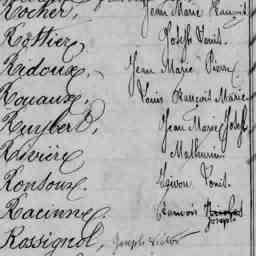 Rocher, Jean Marie François
Rottier Joseph Louis.
Ridoux, Jean Marie Pierre
Royaux, Louis François Marie
Ruybert, Jean Marie Joseph
Rivière Mathurin
Ronsoux. Louis.
Racinne. François Joseph
Rossignol, Joseph Victor